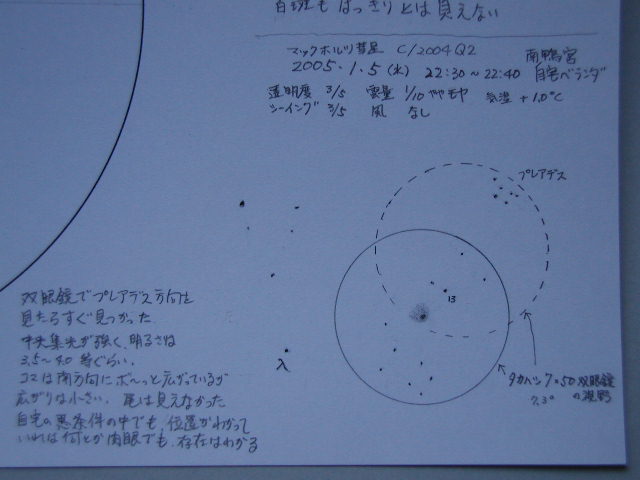 白斑もはっきりとは見えない
マックホルツ彗星 C/2004 Q2
南鴨宮
2005.1.5(水) 22:30~22:40 自宅ベランダ
透明度 3/5 雲量 1/10 ややモヤ 気温 +1.0°C
シーイング 3/5 風 なし
プレアデス
13
λ
双眼鏡でプレアデス方向を
見たらすぐ見つかった
中央集光が強く、明るさは
3.5~4.0 等ぐらい。
コマは南方向にボーッと広がっているが
広がりは小さい。尾は見えなかった
自宅の悪条件の中でも、位置がわかって
いれば何とか肉眼でも、存在はわかる
タカハシ 7×50 双眼鏡
の視野
7.3°